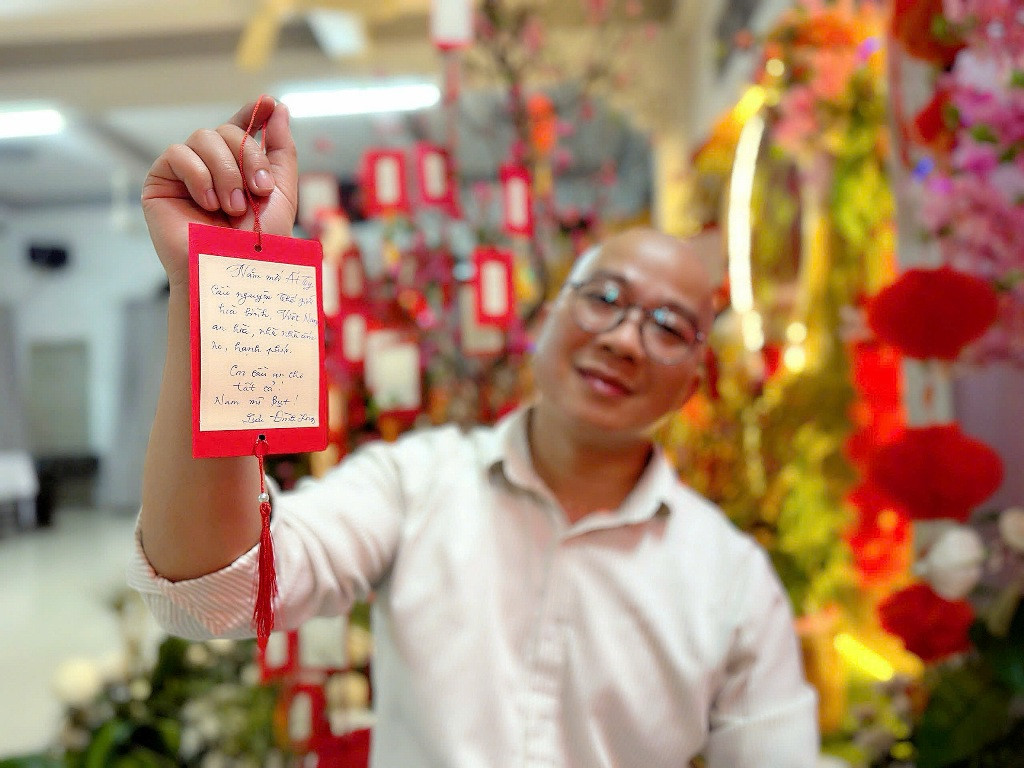 Năm mới Ất Tỵ
Cầu nguyện thế giới
hòa bình, Việt Nam
an hòa, nhà nhà ấm
no, hạnh phúc.
Con cầu an cho
tất cả!
Nam mô Bụt!